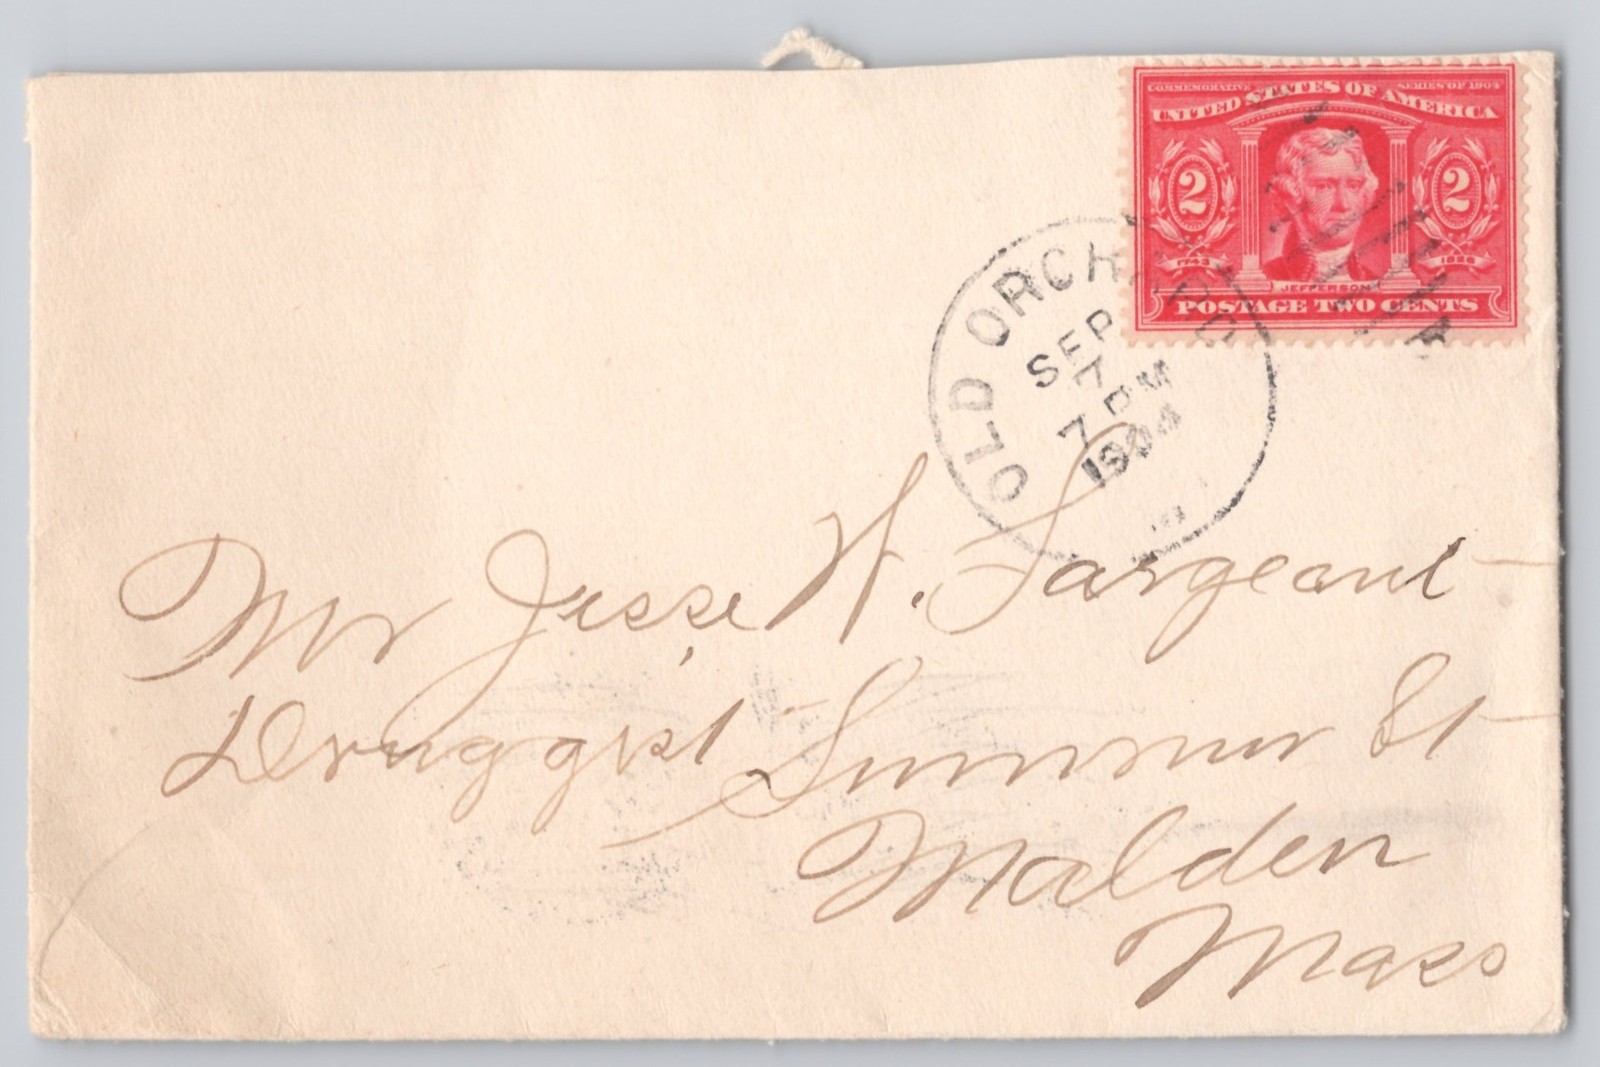 COMMEMORATIVE SERIES OF 1904
UNITED STATES OF AMERICA
2 2
1743 1826
JEFFERSON
POSTAGE TWO CENTS
OLD ORCHARD
SEP
7
7 PM
1904
Mr Jesse W. Sargeant
Druggist Summer St
Malden
Mass